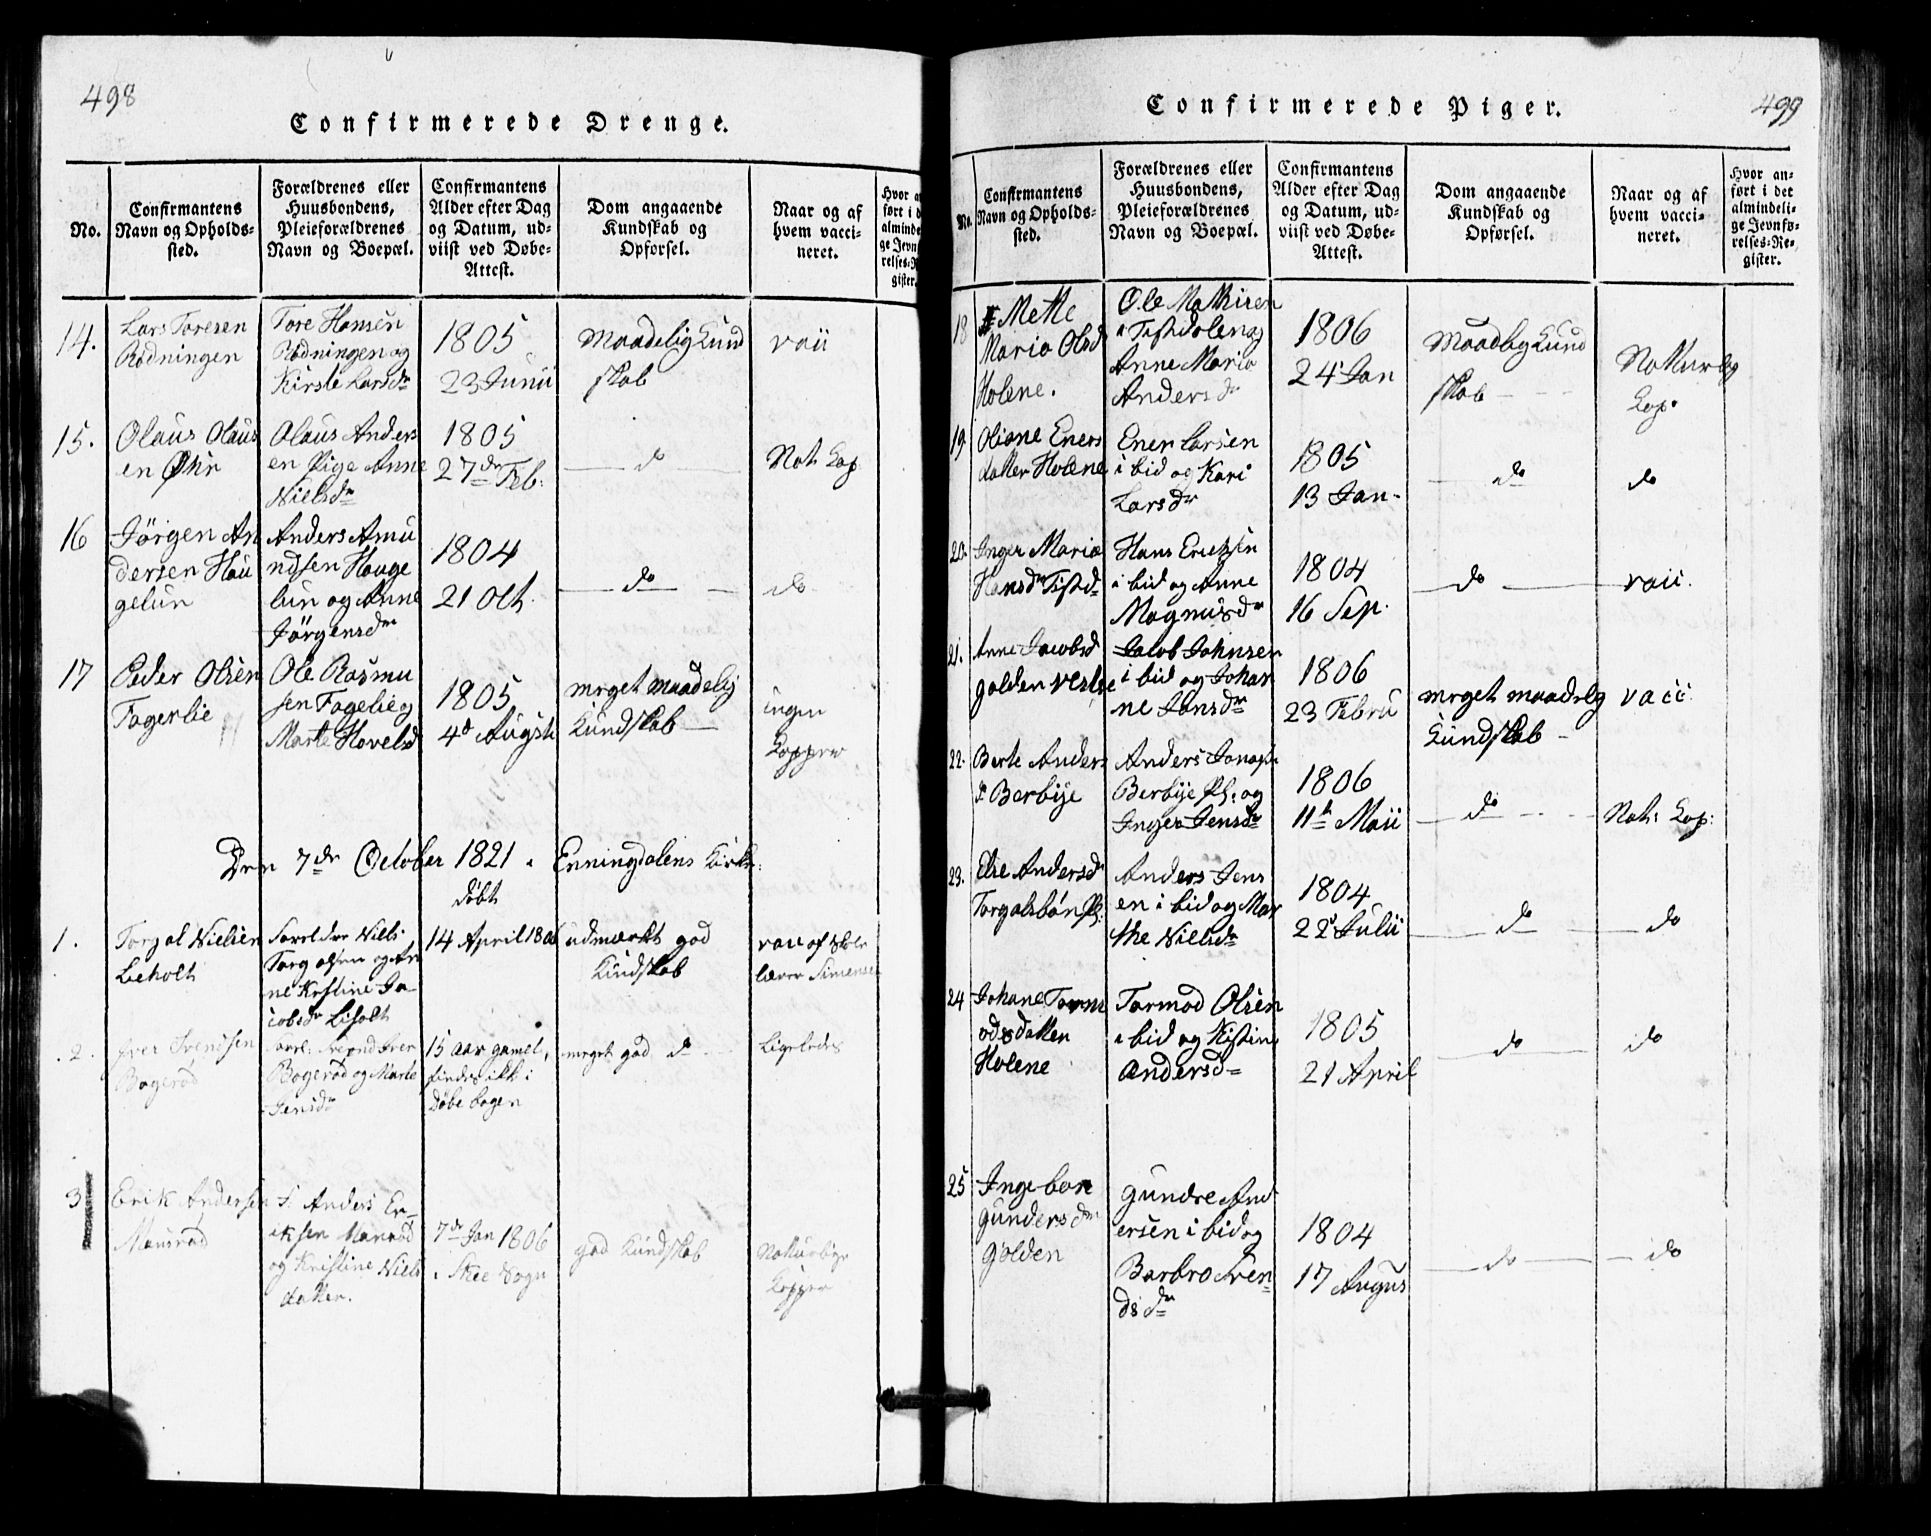 498
Confirmerede Drenge.
No.
Confirmantens
Navn og Opholds-
sted.
Forældrenes eller
Huusbondens,
Pleieforældrenes
Navn og Boepæl.
Confirmantens
Alder efter Dag
og Datum, ud-
viist ved Døbe-
Attest.
Dom angaaende
Kundskab og
Opførsel.
Naar og af
hvem vacci-
neret.
14.
Lars Toresen
Rødningen
Tore Hansen
Rødningen og
Kirste Larsdr
1805
23 Junii
Maadelig Kund
skab
vaii
15.
Olaus Olaus
en Øhr
Olaus Anders
en Pige Anne
Nielsdr
1805
27de Feb:
do
Nat. Kop
16
Jørgen An
dersen Hau
gelun
Anders Amu
ndsen Hauge
lun og Anne
Jørgensdr
1804
21 Oct.
do
do
17
Peder Olsen
Fagerlie
Ole Rasmu
sen Fagelie og
Marte Havelsd
1805
4d August
meget maadelig
Kundskab
ingen
Kopper
Den 7de October 1821 i Enningdalens Kirke:
døbt
1.
Torgal Nielsen
Leholt
Forældre Niels
Torgalsen og An
ne Kristine Ja-
cobsdr Liholt
14 April 1806
udmærkt god
Kundskab
vaii af Skole
lærer Simensen
2.
Iver Svendsen
Bagerød
Forel: Svend Iver
Bøgerød og Marte
Jensdr
15 aar gamel,
findes ikk i
Døbe bogen
meget god do
Ligeledes
3
Erik Andersen
Mansrød
F: Anders Er-
iksen Manrød
og Kristine Niels
datter.
7de Jan 1806
i Skee Sogn
god Kundskab
Naturlige
Kopper
499
Confirmerede Piger.
No.
Confirmantens
Navn og Opholds-
sted.
Forældrenes eller
Huusbondens,
Pleieforældrenes
Navn og Boepæl.
Confirmantens
Alder efter Dag
og Datum, ud-
viist ved Døbe-
Attest.
Dom angaaende
Kundskab og
Opførsel.
Naar og af
hvem vacci-
neret.
Hvor an-
ført i det
almindeli-
ge Jevnfø-
relses-Re-
gister.
18
Mette
Maria Olsd
Holene.
Ole Mathisen
i Tistdalen og
Anne Maria
Andersdr
1806
24 Jan
Maadlig Kund
skab
Naturlig
Kop.
19
Oliane Eners
datter Holene
Ener Larsen
i bid og Kari
Larsdr
1805
13 Jan-
do
do
20.
Inger Maria
Hansdr Tistd
Hans Erichsen
i bid og Anne
Magnusdr
1804
16 Sep.
do
vaii.
21.
Anne Jacobsd
galden vestre
Jacob Johnsen
i bid og Johan
ne Jansdr
1806
23 Febru
meget maadelg
Kundskab
vacc:
22.
Berte Anders
dr Berbye
Anders Jonas
Berbye Pl: og
Inger Jensdr
1806
11te Maii
do
Nat: Kop:
23.
Else Andersdr
Torgalsbøn Pl:
Anders Jens
en i bid og Mar
the Nielsdr
1804
22 Julii
do
do
24
Johane Torm
odsdatter
Holene
Tormod Olsen
i bid og Kistine
Andersd
1805
21 April
do
do
25
Ingebor
Gundersdr
Galden
Gundre And
ersen i bid og
Barbro Sven-
dsdr
1804
17 Augus
do
do